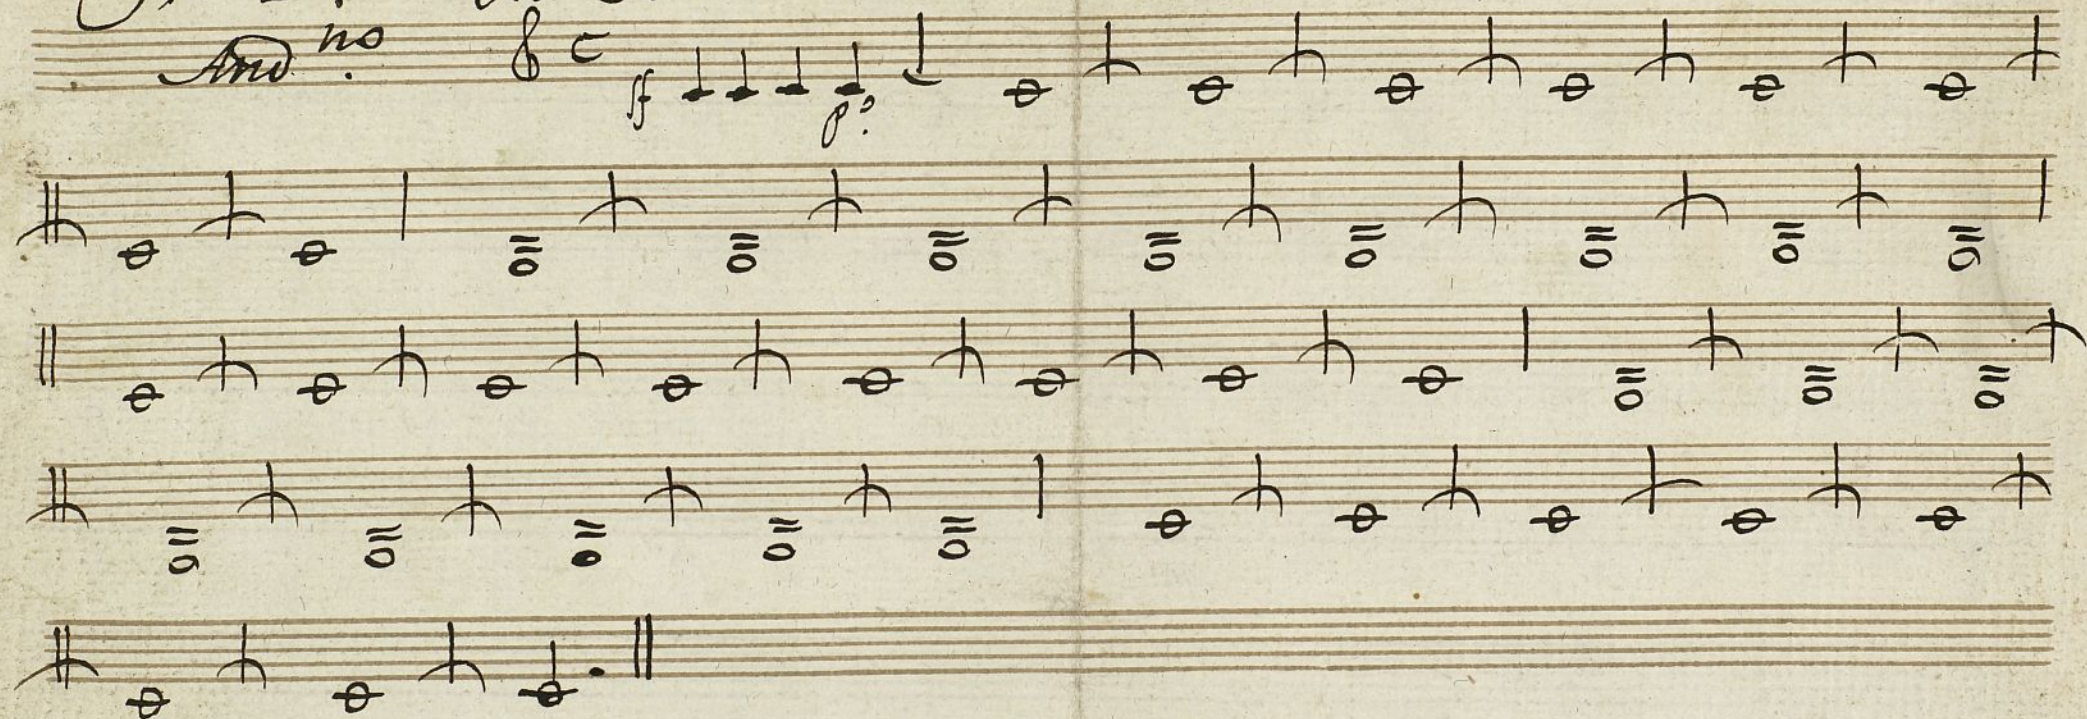 And no.
ff po.